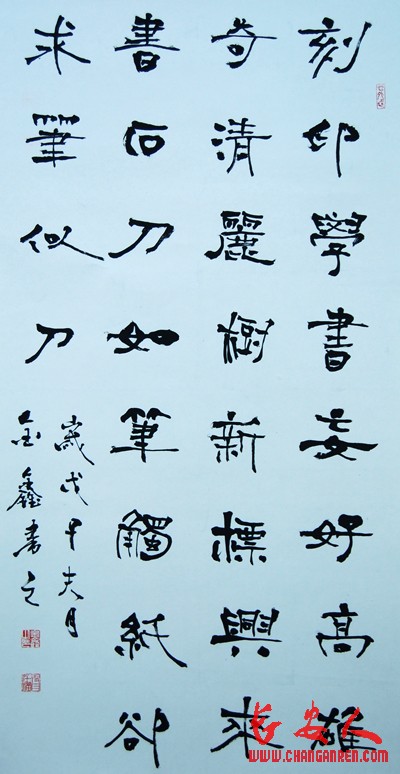 刻印學書妄好高雄
奇清麗樹新標興來
書石刀如筆觸紙卻
求筆似刀
歲戊月
金鑫書之
长安人
WWW.CHANGANREN.COM